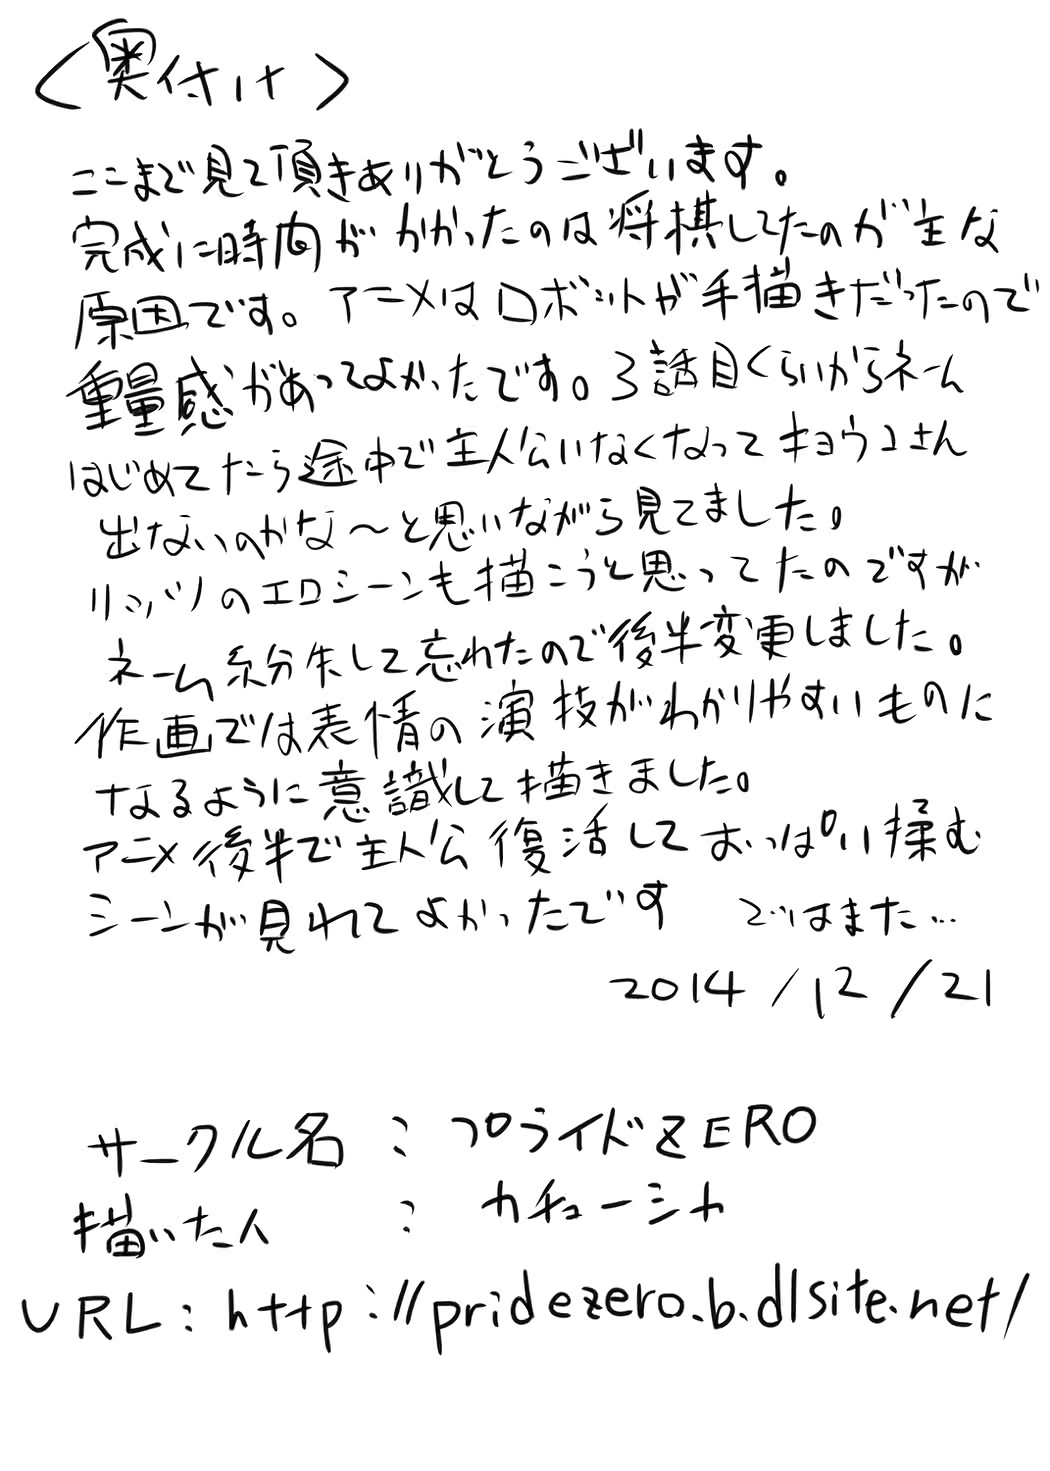 <奥付け>
ここまで見て頂きありがとうございます。
完成に時間がかかったのは将棋してたのが主な
原因です。アニメはロボットが手描きだったので
重量感があってよかったです。3話目くらいからネーム
はじめてたら途中で主人公いなくなってキョウコさん
出ないのかな〜と思いながら見てました。
リンツのエロシーンも描こうと思ってたのですが
ネーム紛失して忘れたので後半変更しました。
作画では表情の演技がわかりやすいものに
なるように意識して描きました。
アニメ後半で主人公復活しておっぱい揉む
シーンが見れてよかったです ではまた…
2014/12/21
サークル名:プライドZERO
描いた人:カチューシャ
URL:http://pridezero.b.dlsite.net/